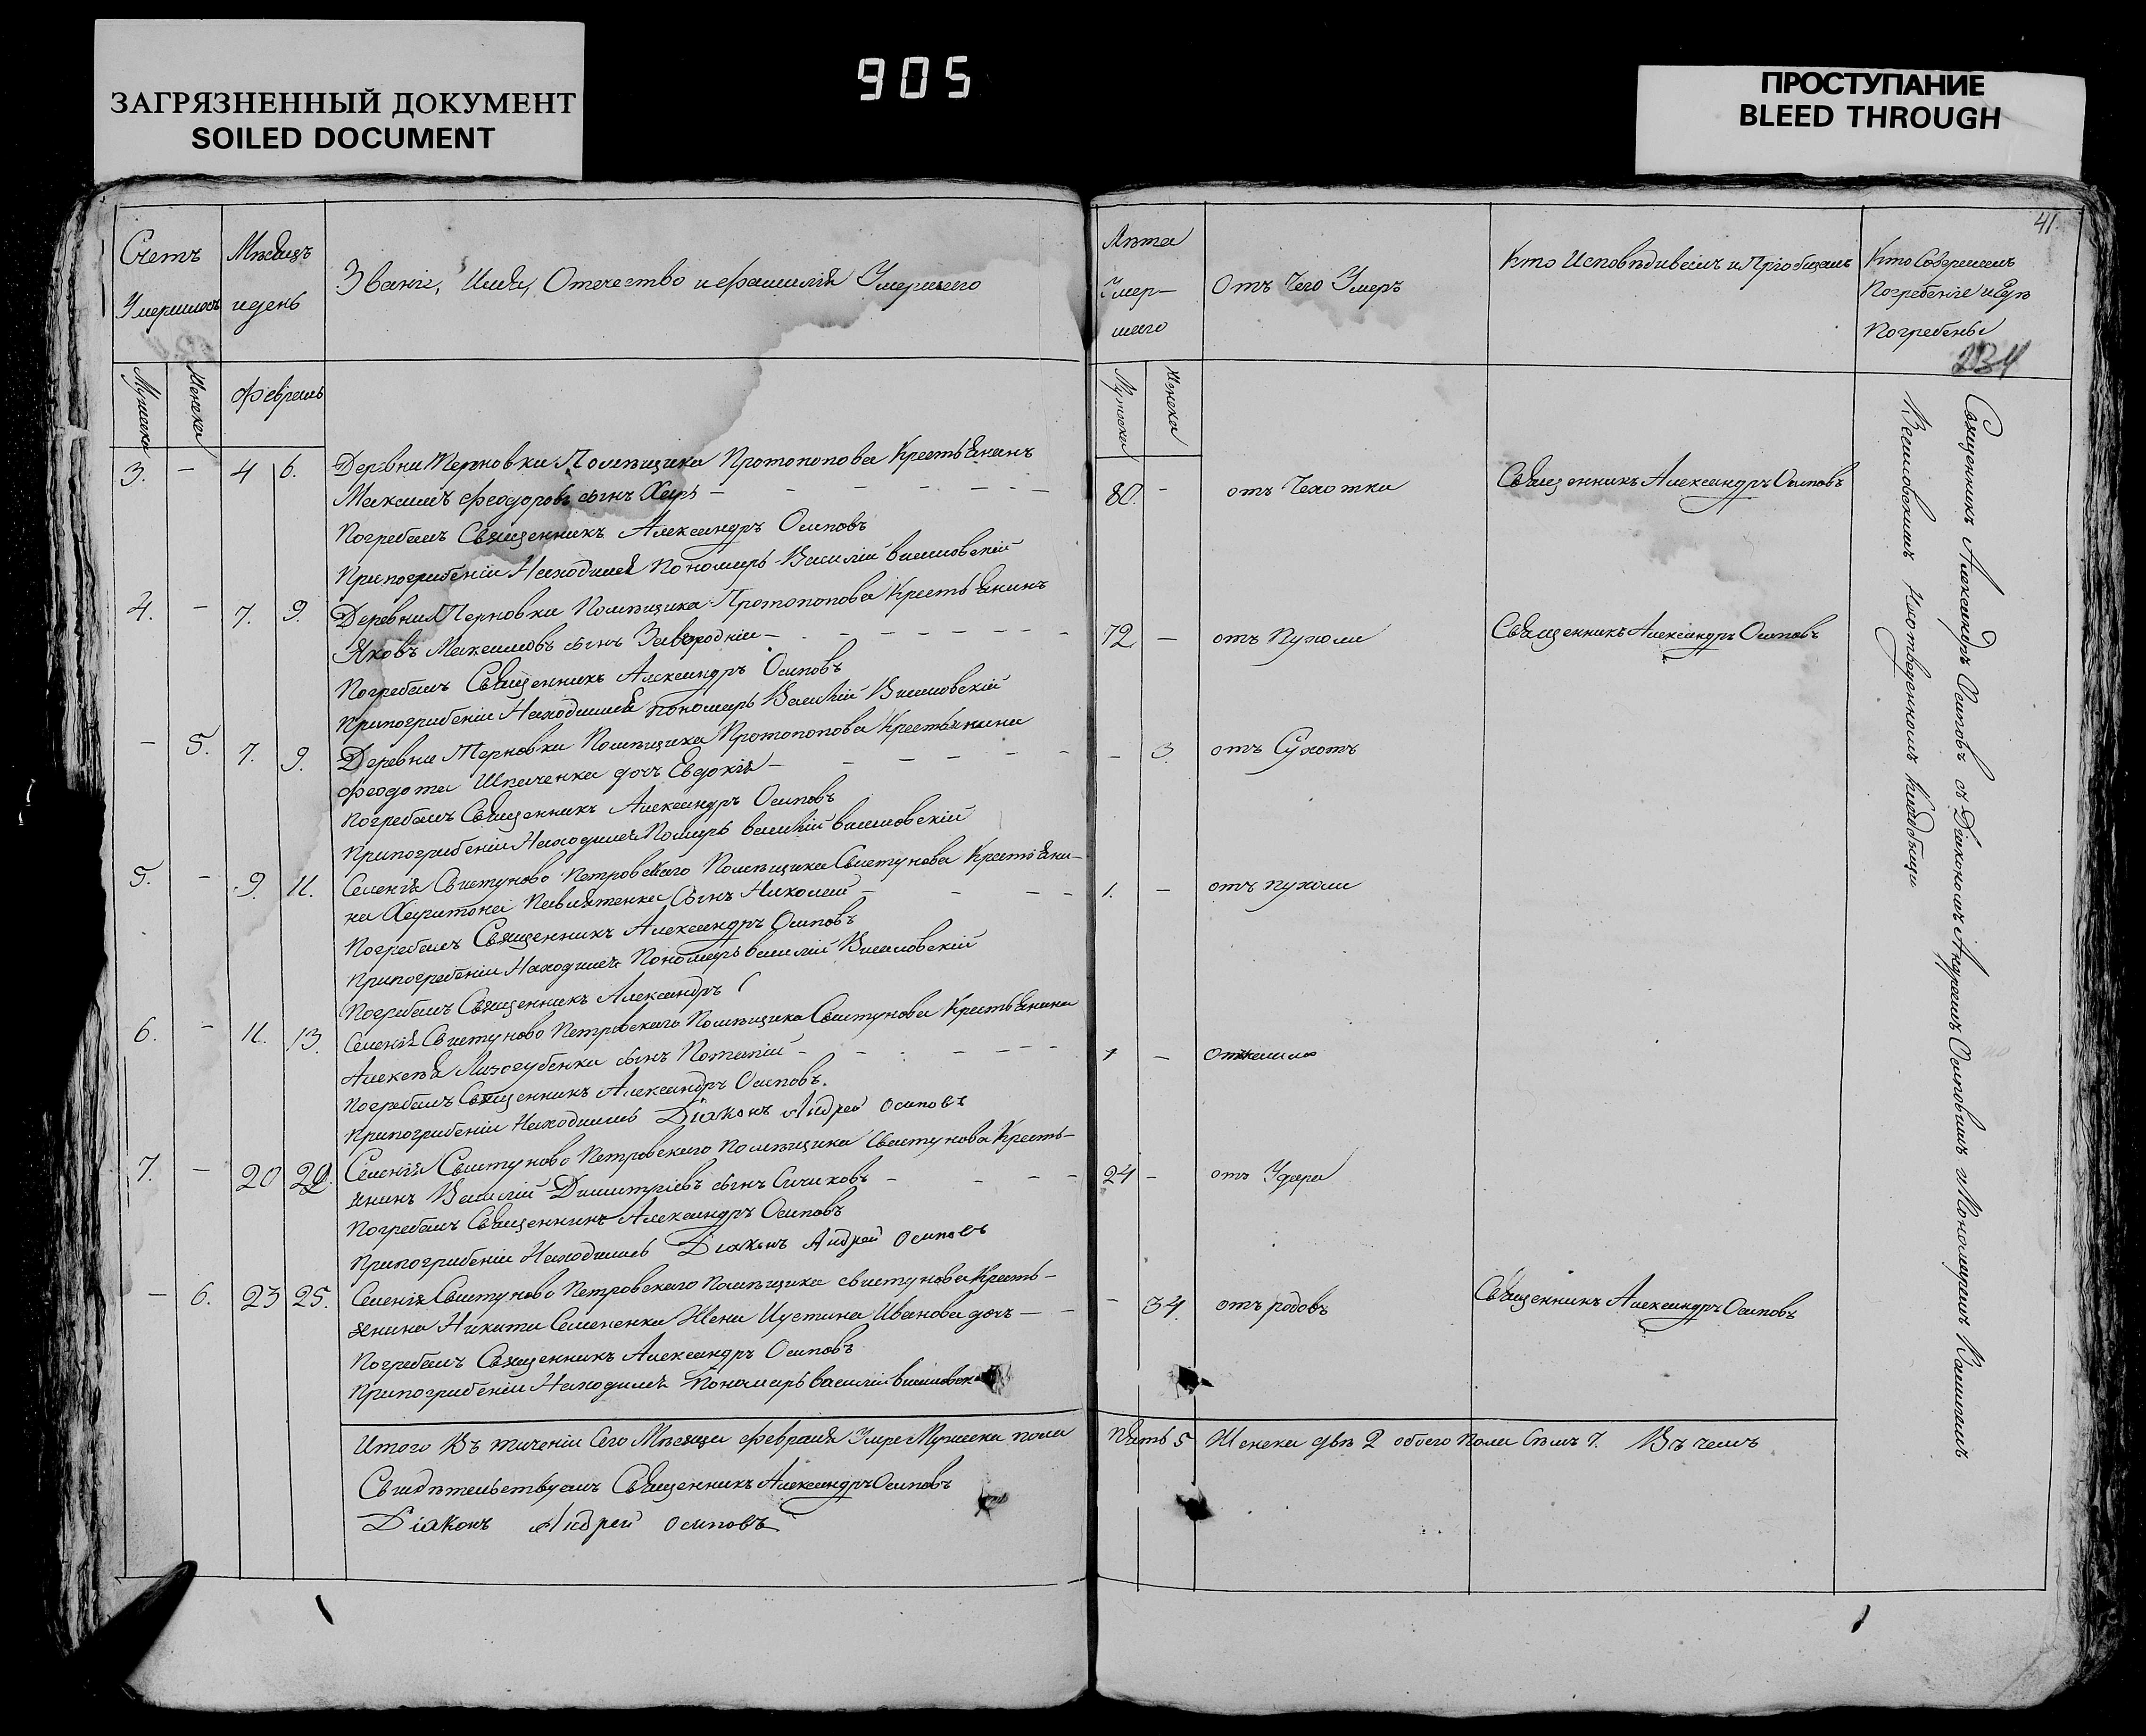 ЗАГРЯЗНЕННЫЙ ДОКУМЕНТ
SOILED DOCUMENT
905
ПРОСТУПАНИЕ
BLEED THROUGH
41
Счетъ Умершихъ
Мѣсяцъ и день
Званіе, Имя, Отечество и фамилія Умершаго
Лѣта Умер-
шаго
Отъ Чего Умеръ
Кто Исповѣдивалъ и Пріобщалъ
Кто Совершалъ
Погребеніе и Гдѣ
Погребены
234
Мужеска
Женска
Февраль
Мужеска
Женска
3. – 4 6. Деревни Терновки Помѣщика Протопопова Крестьянинъ
Максимъ Феодоровъ сынъ – 80. – отъ Чахотки Священникъ Александръ Осиповъ
Погребалъ Священникъ Александръ Осиповъ
При погребеніи Находился Пономарь Василій
4. – 7. 9. Деревни Терновки Помѣщика Протопопова Крестьянинъ
Яковъ Максимовъ сынъ Завгородній – 72. – отъ Пухоли Священникъ Александръ Осиповъ
Погребалъ Священникъ Александръ Осиповъ
При погребеніи Находился пономарь Василій
– 5. 7. 9. Деревни Терновки Помѣщика Протопопова Крестьянина
Феодота Шпаченка дочь Евдокія – – 3. отъ Сухотъ
Погребалъ Священникъ Александръ Осиповъ
При погребеніи Находился Помарь Василій
5. – 9. 11. Селенія Свистуново Петровскаго Помѣщика Свистунова Крестьяни-
на Харитона Павлятенка Сынъ Николай – 1. – отъ пухоли
Погребалъ Священникъ Александръ Осиповъ
При погребеніи Находился Пономарь Василій
Погребалъ Священникъ Александръ
6. – 11. 13. Селенія Свистуново Петровскаго Помѣщика Свистунова Крестьянина
Алексѣя Лизогубенка сынъ Потапій – 1 –
Погребалъ Священникъ Александръ Осиповъ.
При погребеніи Находились Діаконъ Андрей Осиповъ
7. – 20 22. Селенія Свистуново Петровскаго Помѣщика Свистунова Кресть-
янинъ Василій Димитріевъ сынъ Сичиковъ – 24 – отъ Удара
Погребалъ Священникъ Александръ Осиповъ
При погребеніи Находились Діаконъ Андрей Осиповъ
– 6. 23 25. Селенія Свистуново Петровскаго Помѣщика Свистунова Кресть-
янина Никити Семененка Жена Иустина Иванова дочь – – 34. отъ родовъ Священникъ Александръ Осиповъ
Погребалъ Священникъ Александръ Осиповъ
При погребеніи Находился Пономарь Василій
Итого Въ теченіи Сего Мѣсяца Февраля Умре Мужеска пола Пять 5 Женска двѣ 2 обоего Пола Сѣмъ 7. Въ чемъ
Свидѣтельствуемъ Священникъ Александръ Осиповъ
Діаконъ Андрей Осиповъ
Священникъ Александръ Осиповъ съ Діакономъ Андреемъ Осиповымъ и Пономаремъ Василіемъ
на отведенномъ Кладбищи